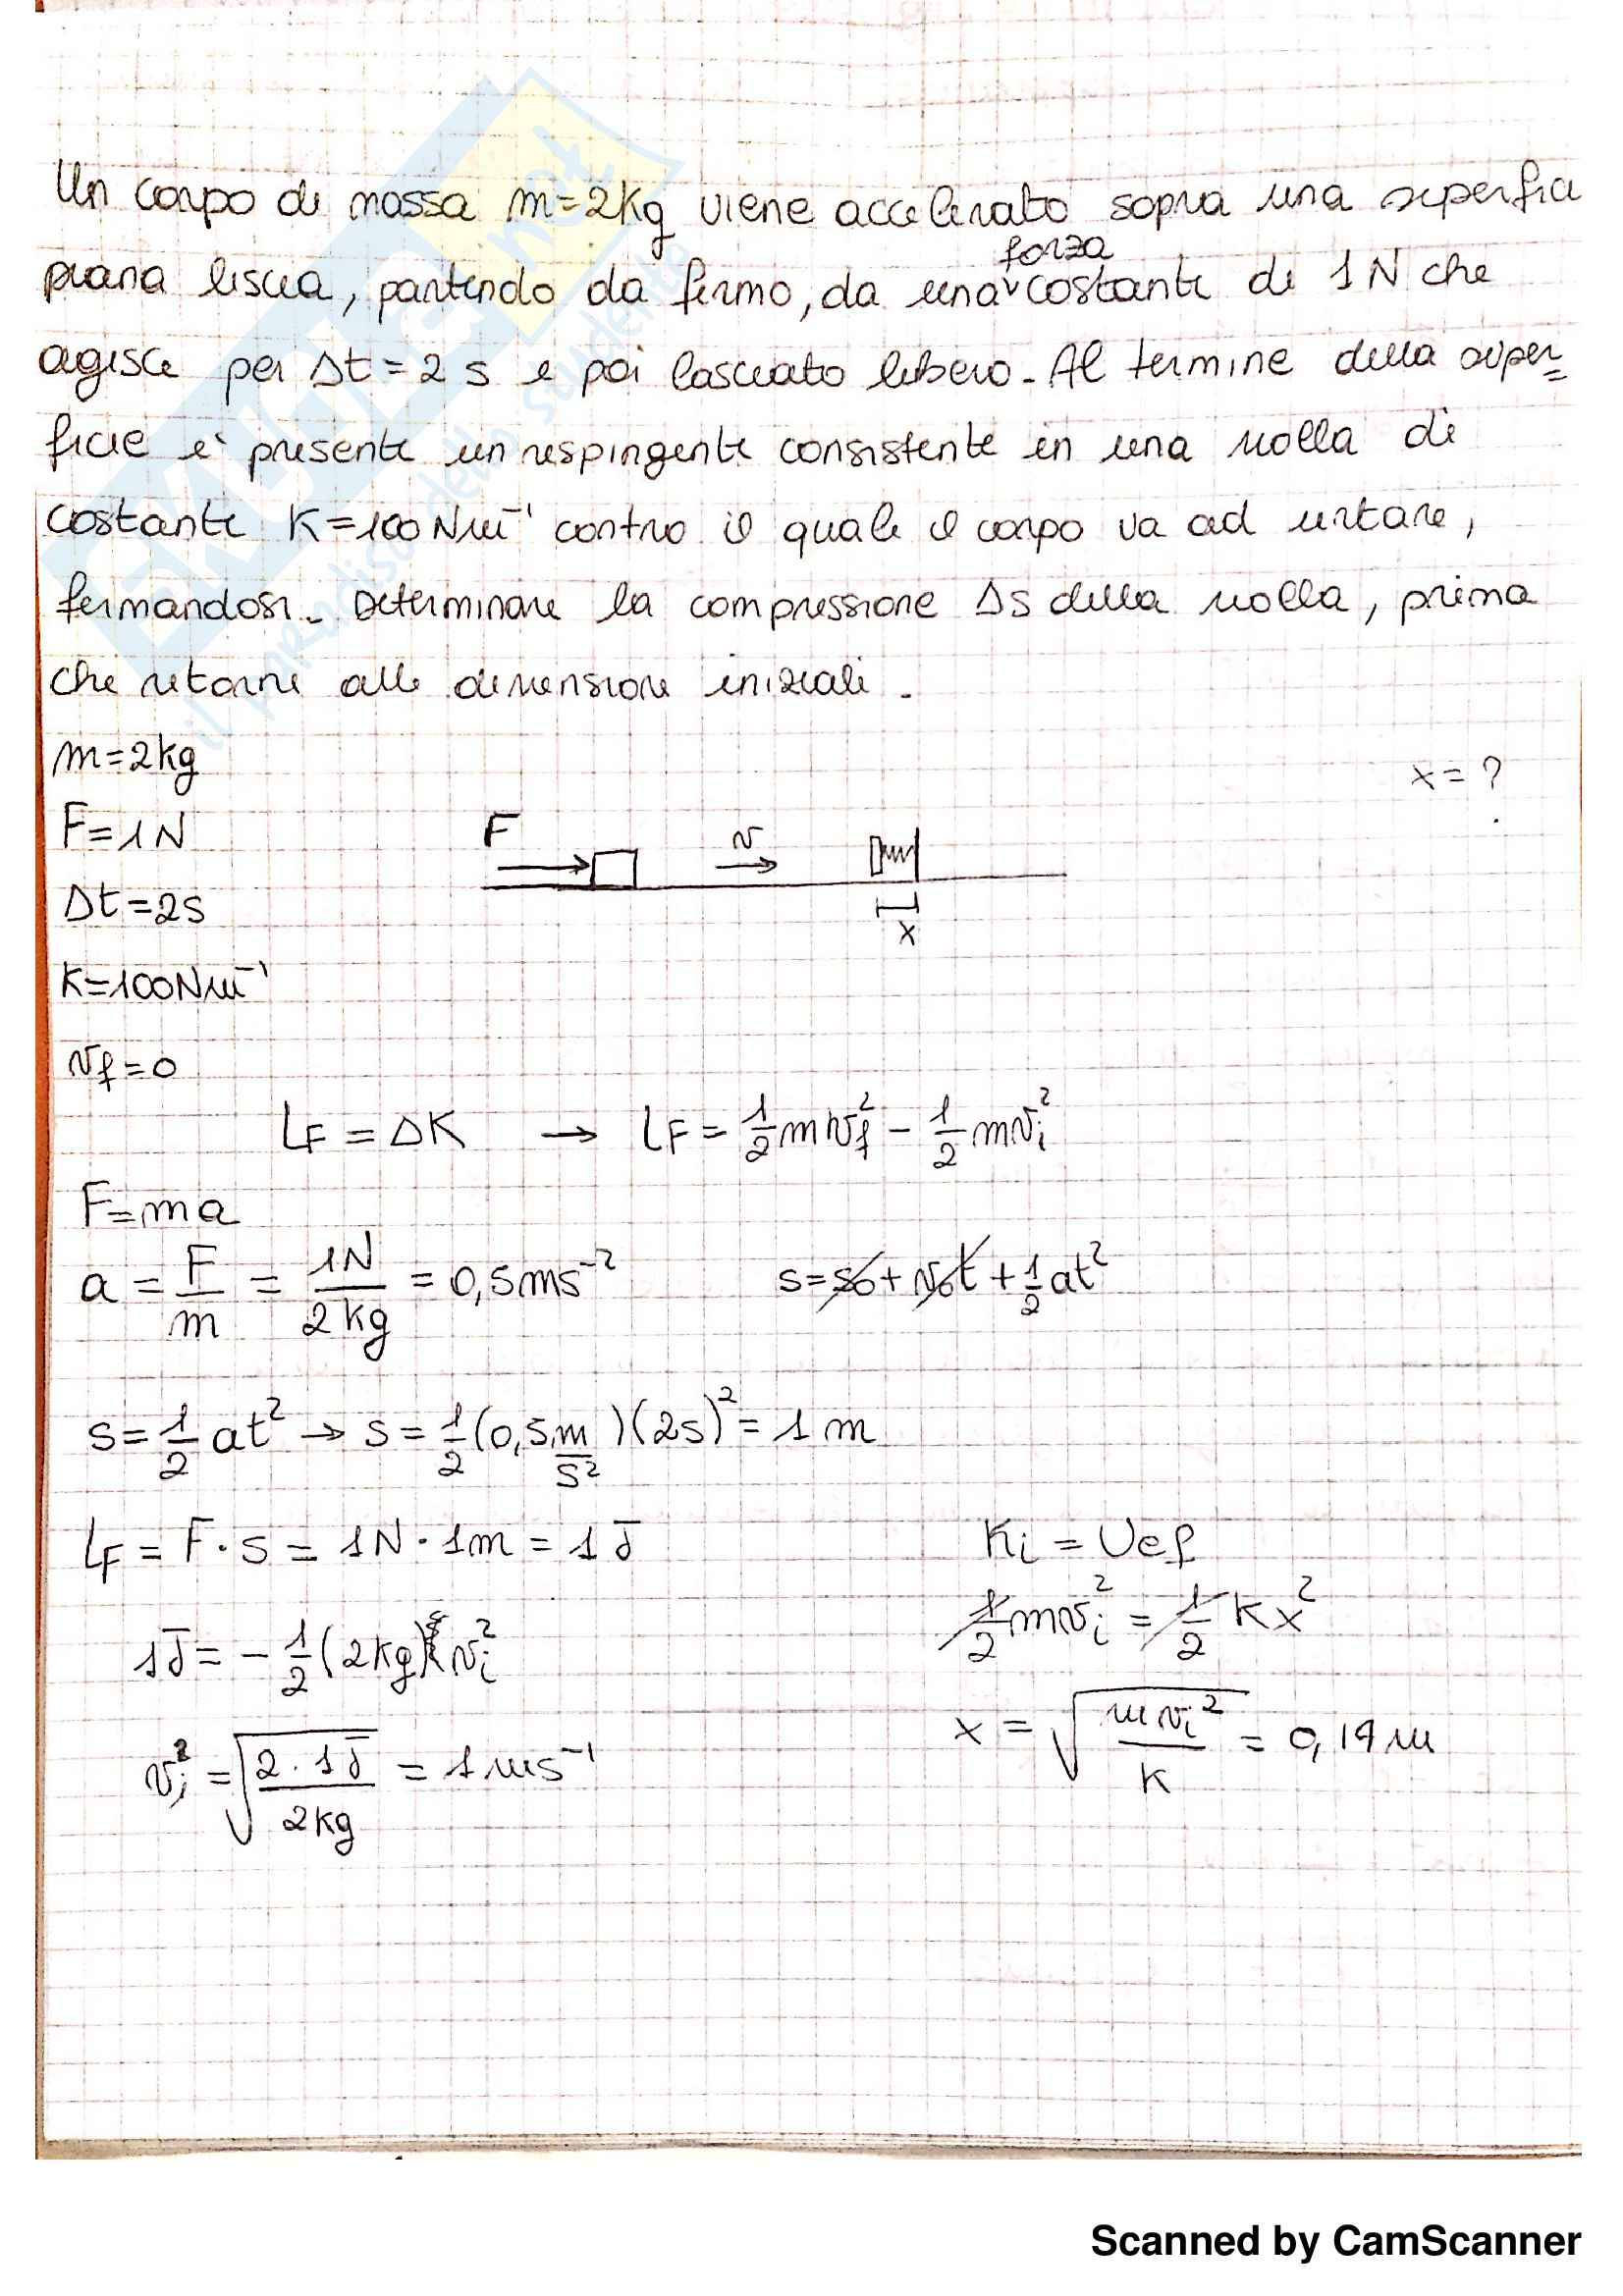 Un corpo di massa m=2Kg viene accelerato sopra una superficie
piana liscia, partendo da fermo, da una forza costante di 1N che
agisce per Δt=2s e poi lasciato libero. Al termine della super=
ficie è presente un respingente consistente in una molla di
costante K=100Nm⁻¹ contro il quale il corpo va ad urtare,
fermandosi. Determinare la compressione Δs della molla, prima
che ritorni alle dimensioni iniziali.
m=2kg
x=?
F=1N
F
v
Δt=2s
x
K=100Nm⁻¹
vf=0
LF = ΔK → LF = 1/2 mvf² - 1/2 mvi²
F=ma
a = F/m = 1N/2kg = 0,5ms⁻²
s=s0+v0t+1/2at²
s=1/2 at² → s=1/2(0,5m/s²)(2s)²=1m
LF = F·s = 1N·1m = 1J
Ki = Uef
1J = -1/2(2kg)vi²
1/2mvi² = 1/2Kx²
vi = √(2·1J/2kg) = 1ms⁻¹
x = √(mvi²/K) = 0,14m
Scanned by CamScanner